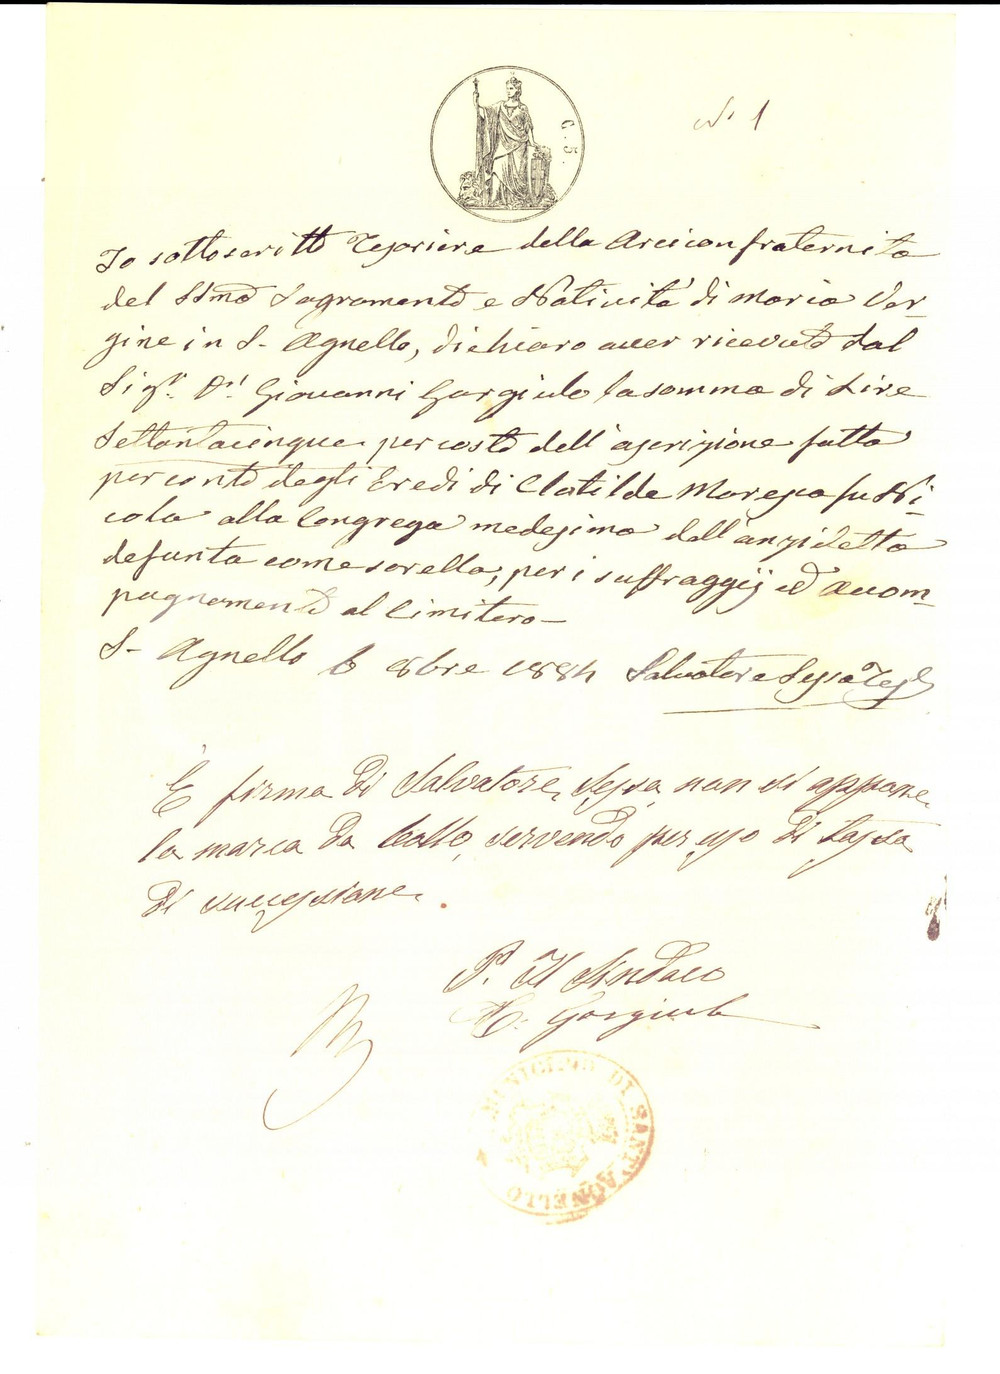 N° 1
G. 5.
Io sottoscritto Tesoriere della Arciconfraternita
del SSmo Sagramento e Natività di Maria Ver-
gine in S. Agnello, dichiaro aver ricevuto dal
Sigr. Dr. Giovanni Gargiulo la somma di Lire
Settantacinque per costo dell'ascrizione fatta
per conto degli Eredi di Clotilde Maresca fu Ni-
cola alla Congrega medesima dell'anzidetta
defunta come sorella, per i suffraggij ed accom-
pagnamento al Cimitero-
S. Agnello 6 8bre 1884 Salvatore Sessa Tesre
È firma di Salvatore Sessa, non si appone
la marca da bollo, servendo per uso di tassa
di successione.
Pel Il Sindaco
Gargiulo
MUNICIPIO DI SANT'AGNELLO